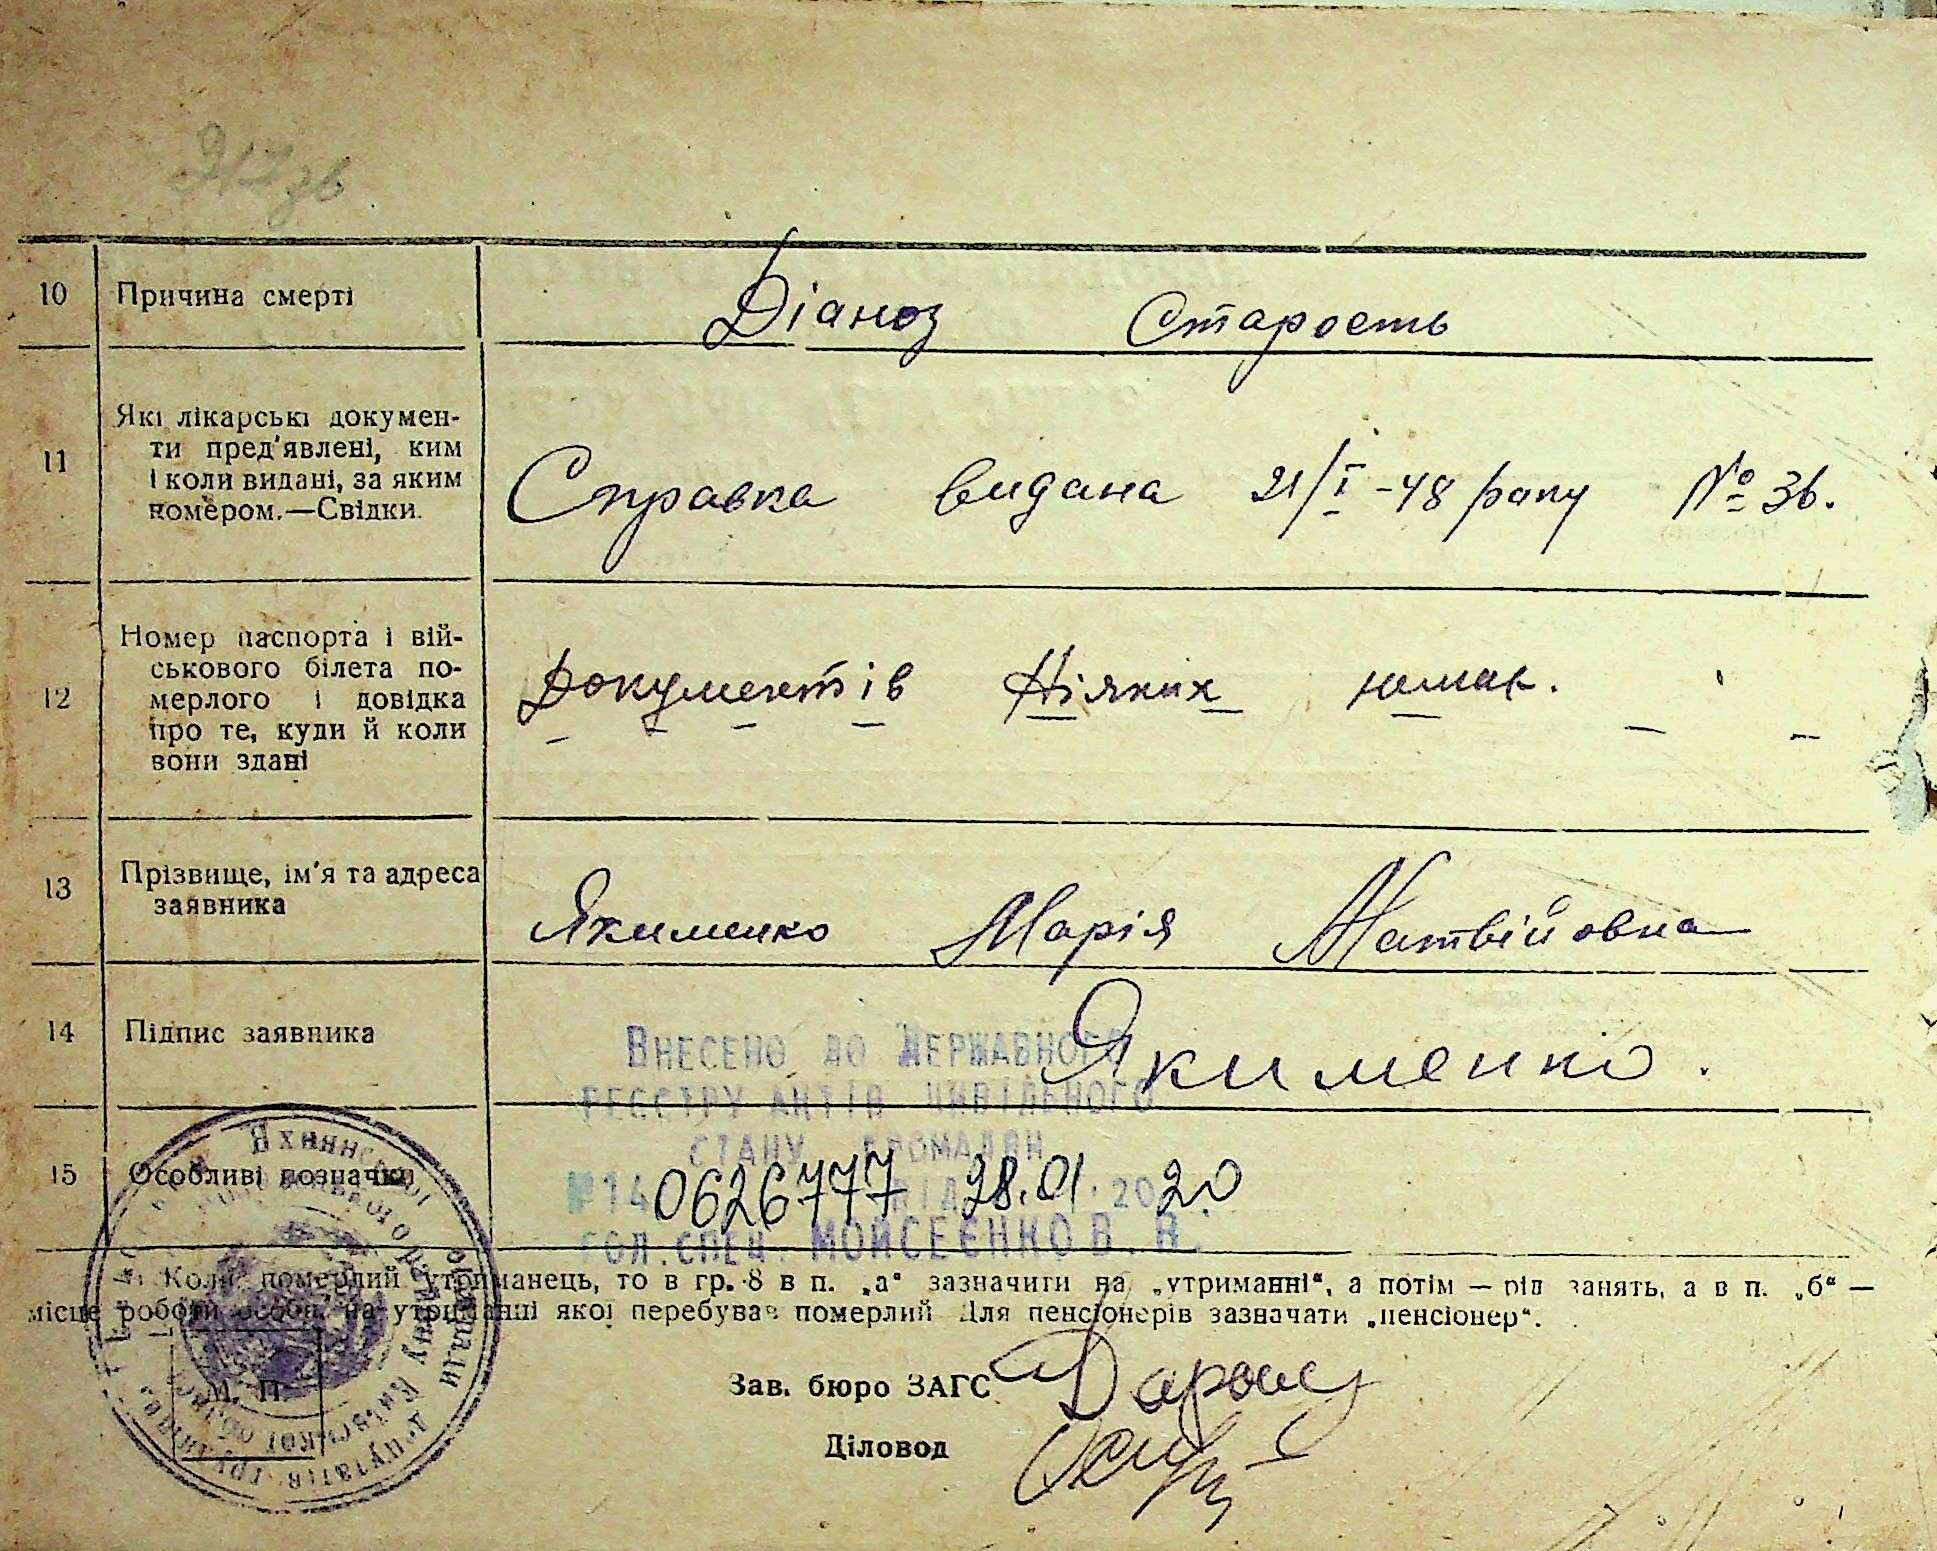 917 зв
10 Причина смерті Діаноз Старость
11 Які лікарські докумен-
ти пред'явлені, ким
і коли видані, за яким
номером.—Свідки.
Справка видана 21/I-48 року № 36.
12 Номер паспорта і вій-
ськового білета по-
мерлого і довідка
про те, куди й коли
вони здані
Документів Ніяких немає.
13 Прізвище, ім'я та адреса
заявника
Якименко Марія Матвійовна
14 Підпис заявника Якименко.
Внесено до Державного
реєстру актів цивільного
стану громадян
15 Особливі позначки
№ 140626777 від 28.01.2020
гол. спец. Мойсеєнко В. В.
Коли померлий утриманець, то в гр. 8 в п. „а“ зазначити на „утриманні“, а потім — рід занять, а в п. „б“ —
місце роботи особи, на утриманні якої перебував померлий Для пенсіонерів зазначати „пенсіонер“.
Зав. бюро ЗАГС
М. П.
Діловод
депутатів трудящих
району Київської області